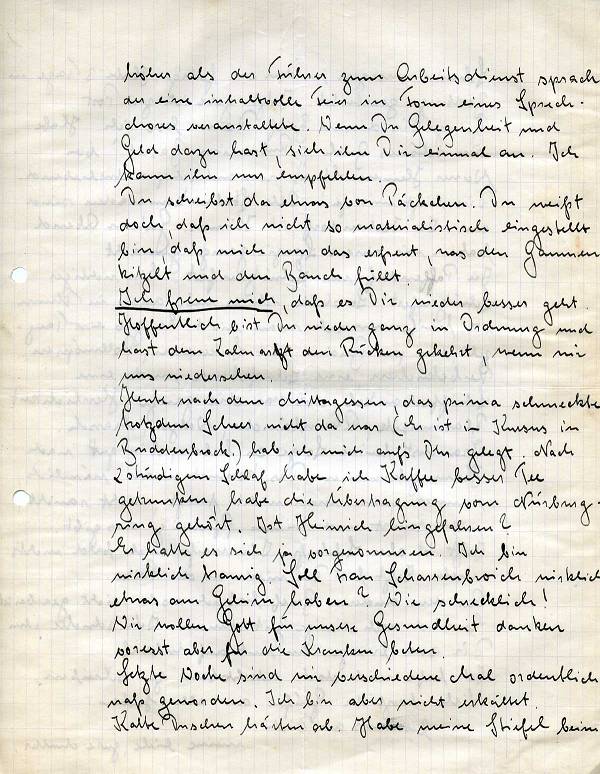 höher als der Führer zum Arbeitsdienst sprach
der eine inhaltvolle Feier in Form eines Sprech-
chores veranstaltete. Wenn Du Gelegenheit und
Geld dazu hast, sieh ihn Dir einmal an. Ich
kann ihn nur empfehlen.
Du schreibst da etwas von Päckchen. Du weißt
doch, daß ich nicht so materialistisch eingestellt
bin, daß mich nur das erfreut, was den Gaumen
kitzelt und den Bauch füllt.
Ich freue mich, daß es Dir wieder besser geht.
Hoffentlich bist Du wieder ganz in Ordnung und
hast dem Zahnarzt den Rücken gekehrt, wenn wir
uns wiedersehen.
Heute nach dem Mittagessen, das prima schmeckte
trotzdem Scheer nicht da war (Er ist in Kursus in
Buddenbrock.) hab ich mich aufs Ohr gelegt. Nach
2stündigem Schlaf habe ich Kaffee besser Tee
getrunken, habe die Übertragung vom Nürburg-
ring gehört. Ist Heinrich hingefahren?
Er hatte es sich ja vorgenommen. Ich bin
wirklich traurig. Soll Frau Scharrenbroich wirklich
etwas am Gehirn haben? Wie schrecklich!
Wir wollen Gott für unsere Gesundheit danken
vorerst aber für die Kranken beten.
Letzte Woche sind wir verschiedene Mal ordentlich
naß geworden. Ich bin aber nicht erkältet.
Kalte Duschen härten ab. Habe meine Stiefel beim